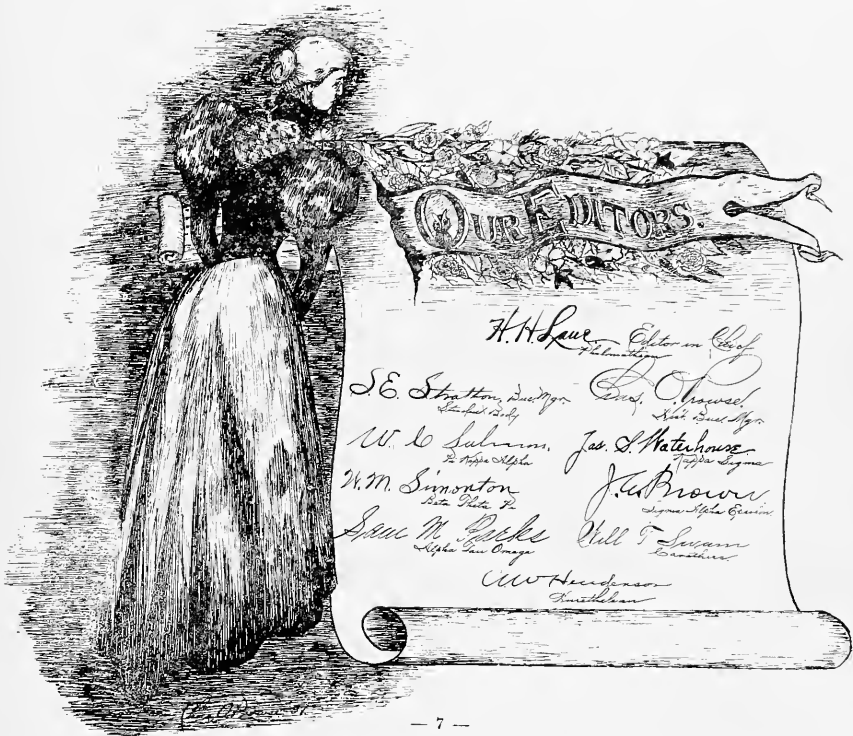 OUR EDITORS
H. H. Lane Editor in Chief
Philomathean
S. E. Stratton, Bus. Mgr.
Student Body
Chas. O. Prowse,
Asst. Bus. Mgr.
W. C.
Pi Kappa Alpha
Jas. S. Waterhouse
Kappa Sigma
W. M. Simonton
Beta Theta Pi
J. A. Brown
Sigma Alpha Epsilon
Sam M. Parks
Alpha Tau Omega
Will T. Swann
Carothers
Henderson
— 7 —